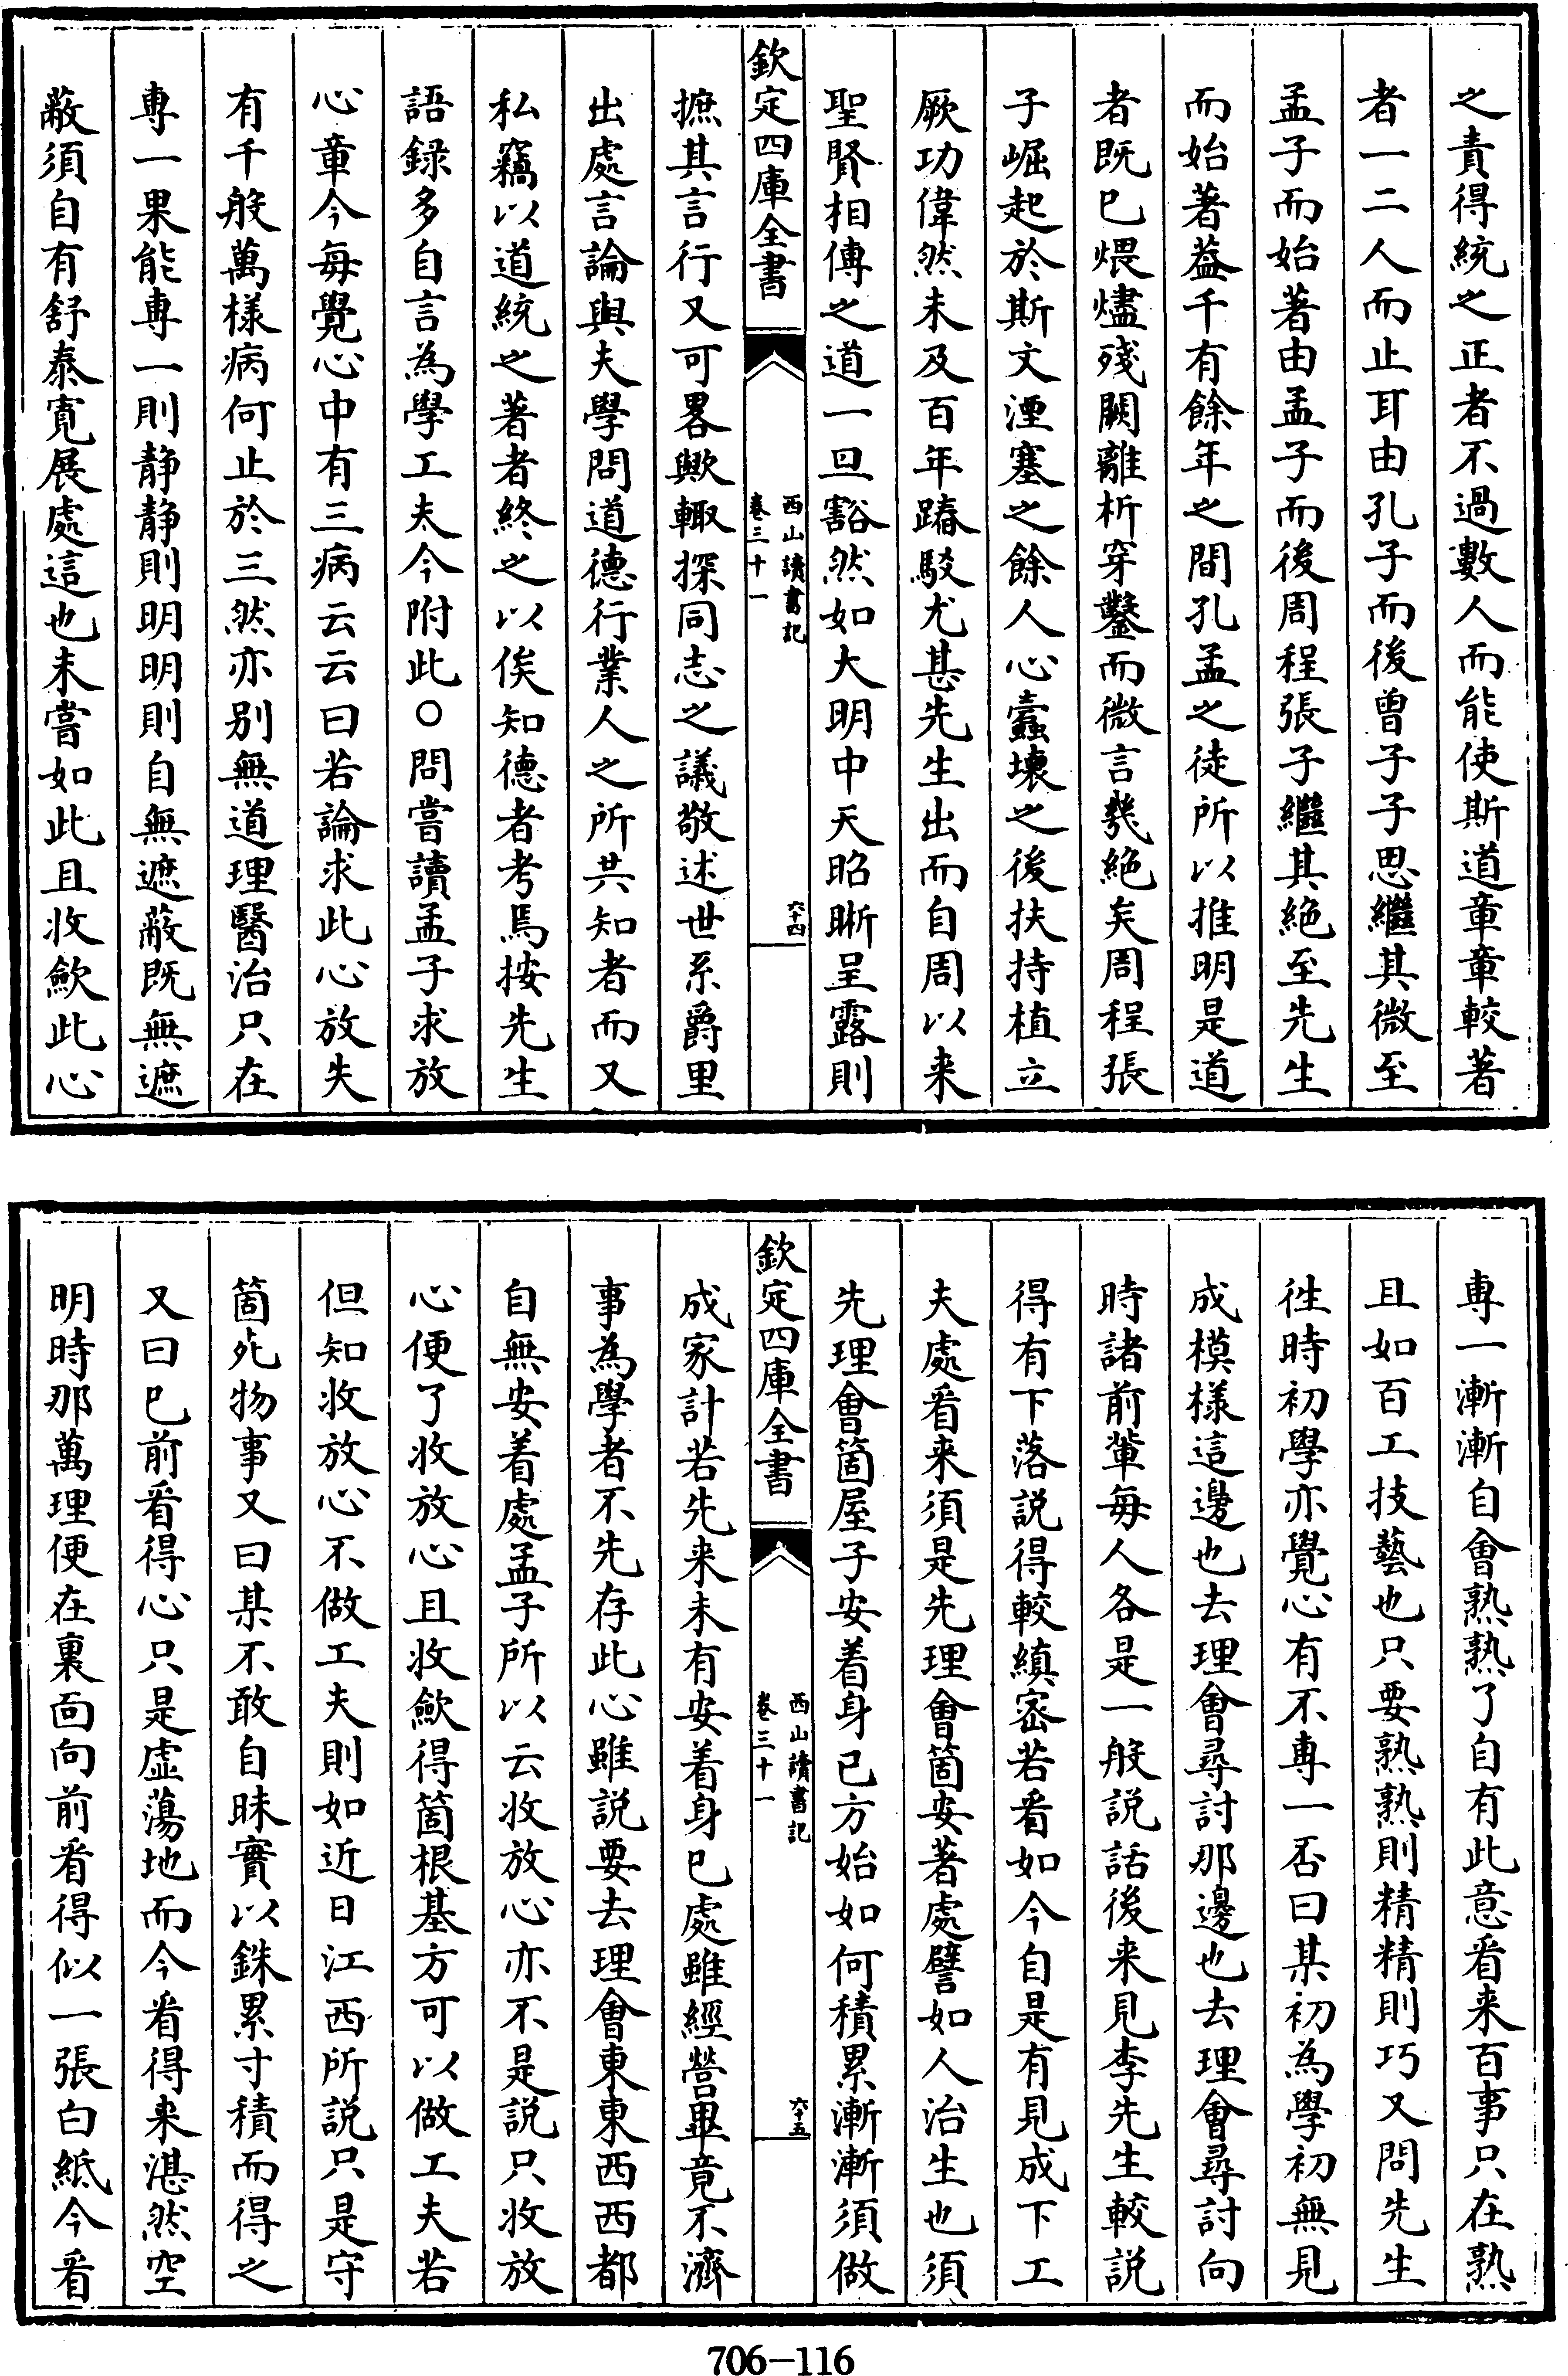 之責得統之正者不過數人而能使斯道章章較著
者一二人而止耳由孔子而後曾子子思繼其微至
孟子而始著由孟子而後周程張子繼其絶至先生
而始著葢千有餘年之間孔孟之徒所以推明是道
者既已煨燼殘闕離析穿鑿而微言幾絶矣周程張
子崛起於斯文湮塞之餘人心蠹壊之後扶持植立
厥功偉然未及百年踳駁尤甚先生出而自周以来
聖賢相傳之道一旦豁然如大明中天昭晰呈露則
欽定四庫全書
西山讀書記
卷三十一
六十四
摭其言行又可畧歟輙採同志之議敬述世系爵里
出處言論與夫學問道德行業人之所共知者而又
私竊以道統之著者終之以俟知德者考焉按先生
語録多自言為學工夫今附此○問嘗讀孟子求放
心章今每覺心中有三病云云曰若論求此心放失
有千般萬樣病何止於三然亦别無道理醫治只在
專一果能專一則静静則明明則自無遮蔽既無遮
蔽須自有舒泰寛展處這也未嘗如此且收歛此心
專一漸漸自會熟熟了自有此意看来百事只在熟
且如百工技藝也只要熟熟則精精則巧又問先生
徃時初學亦覺心有不專一否曰某初為學初無見
成模様這邊也去理會尋討那邊也去理會尋討向
時諸前輩每人各是一般説話後来見李先生較説
得有下落説得較縝宻若看如今自是有見成下工
夫處看来須是先理會箇安著處譬如人治生也須
先理會箇屋子安着身已方始如何積累漸漸須做
欽定四庫全書
西山讀書記
卷三十一
六十五
成家計若先来未有安着身已處雖經營畢竟不濟
事為學者不先存此心雖説要去理會東東西西都
自無安着處孟子所以云收放心亦不是説只收放
心便了收放心且收歛得箇根基方可以做工夫若
但知收放心不做工夫則如近日江西所説只是守
箇死物事又曰某不敢自昧實以銖累寸積而得之
又曰已前看得心只是虚蕩地而今看得来湛然空
明時那萬理便在裏面向前看得似一張白紙今看
706-116